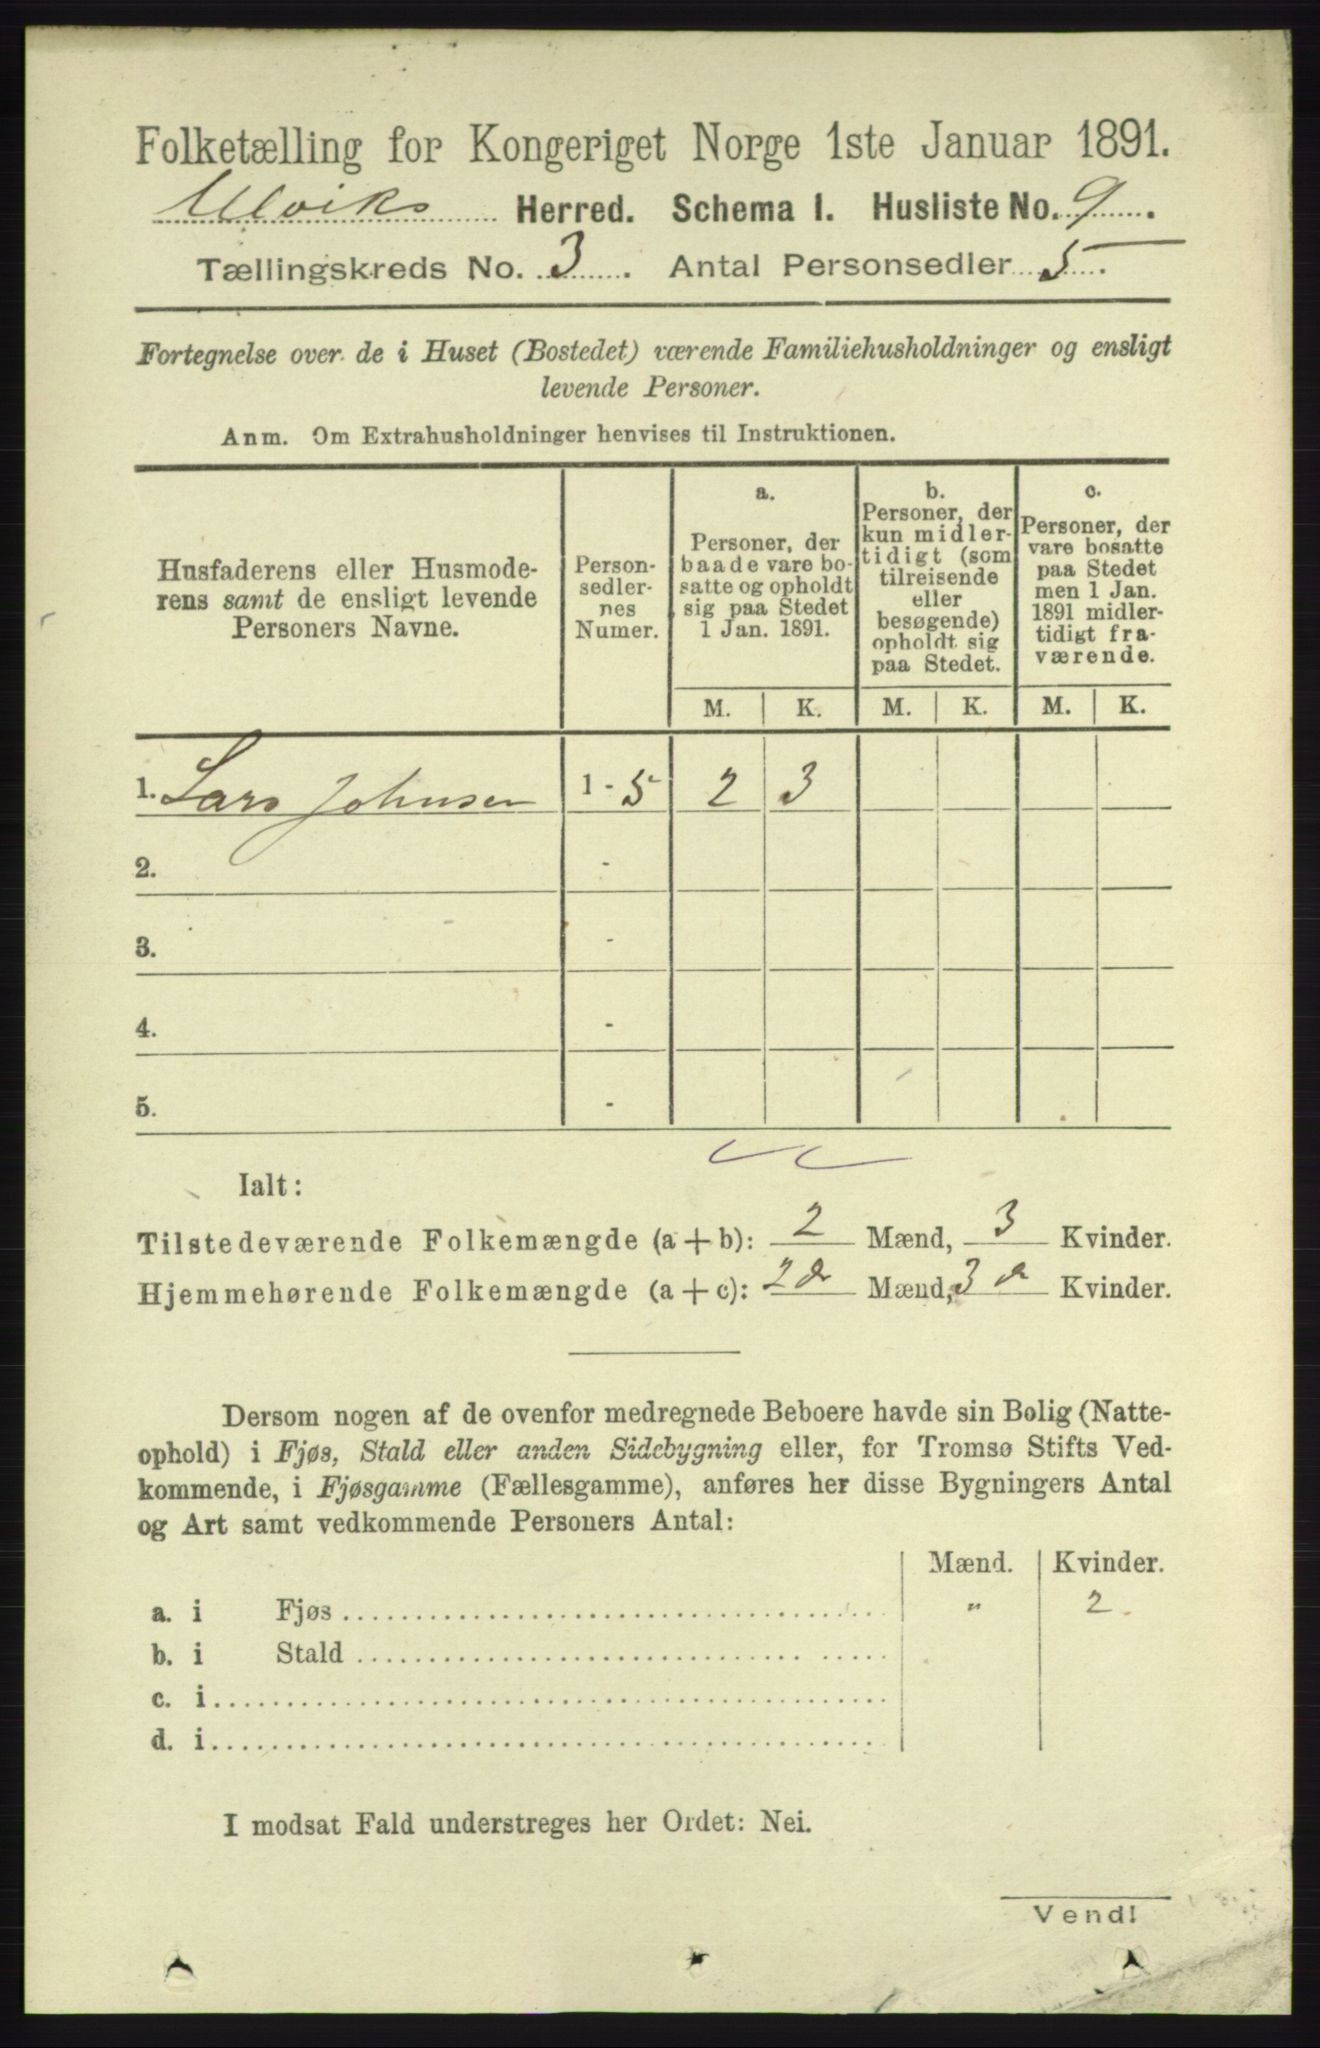 Folketælling for Kongeriget Norge 1ste Januar 1891.
Ulviks Herred. Schema I. Husliste No. 9.
Tællingskreds No. 3. Antal Personsedler 5.
Fortegnelse over de i Huset (Bostedet) værende Familiehusholdninger og ensligt
levende Personer.
Anm. Om Extrahusholdninger henvises til Instruktionen.
Husfaderens eller Husmode-
rens samt de ensligt levende
Personers Navne.
Person-
sedler-
nes
Numer.
a.
Personer, der
baade vare bo-
satte og opholdt
sig paa Stedet
1 Jan. 1891.
b.
Personer, der
kun midler-
tidigt (som
tilreisende
eller
besøgende)
opholdt sig
paa Stedet.
c.
Personer, der
vare bosatte
paa Stedet
men 1 Jan.
1891 midler-
tidigt fra-
værende.
M. K. M. K. M. K.
1. Lars Johnsen 1 - 5 2 3
2. -
3. -
4. -
5. -
Ialt:
Tilstedeværende Folkemængde (a + b): 2 Mænd, 3 Kvinder.
Hjemmehørende Folkemængde (a + c): 2 Mænd, 3 Kvinder.
Dersom nogen af de ovenfor medregnede Beboere havde sin Bolig (Natte-
ophold) i Fjøs, Stald eller anden Sidebygning eller, for Tromsø Stifts Ved-
kommende, i Fjøsgamme (Fællesgamme), anføres her disse Bygningers Antal
og Art samt vedkommende Personers Antal:
Mænd. Kvinder.
a. i Fjøs " 2
b. i Stald
c. i
d. i
I modsat Fald understreges her Ordet: Nei.
Vend!